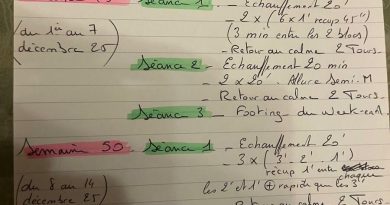 Séance 1 - Echauffement 20'
(du 1er au 7 - 2 x (6 x 1' récup 45")
décembre 25) (3 min entre les 2 blocs)
- Retour au calme 2 Tours
Séance 2 - Echauffement 20 min
- 2 x 20' Allure Semi-M
- Retour au calme 2 Tours
Séance 3 - Footing du Week-end.
Semaine 50 Séance 1 - Echauffement 20'
- 3 x (3'. 2'. 1')
récup 1' entre chaque
(du 8 au 14 les 2' et 1' ⊕ rapide que les 3'
décembre 25) - Retour au calme 2 Tours